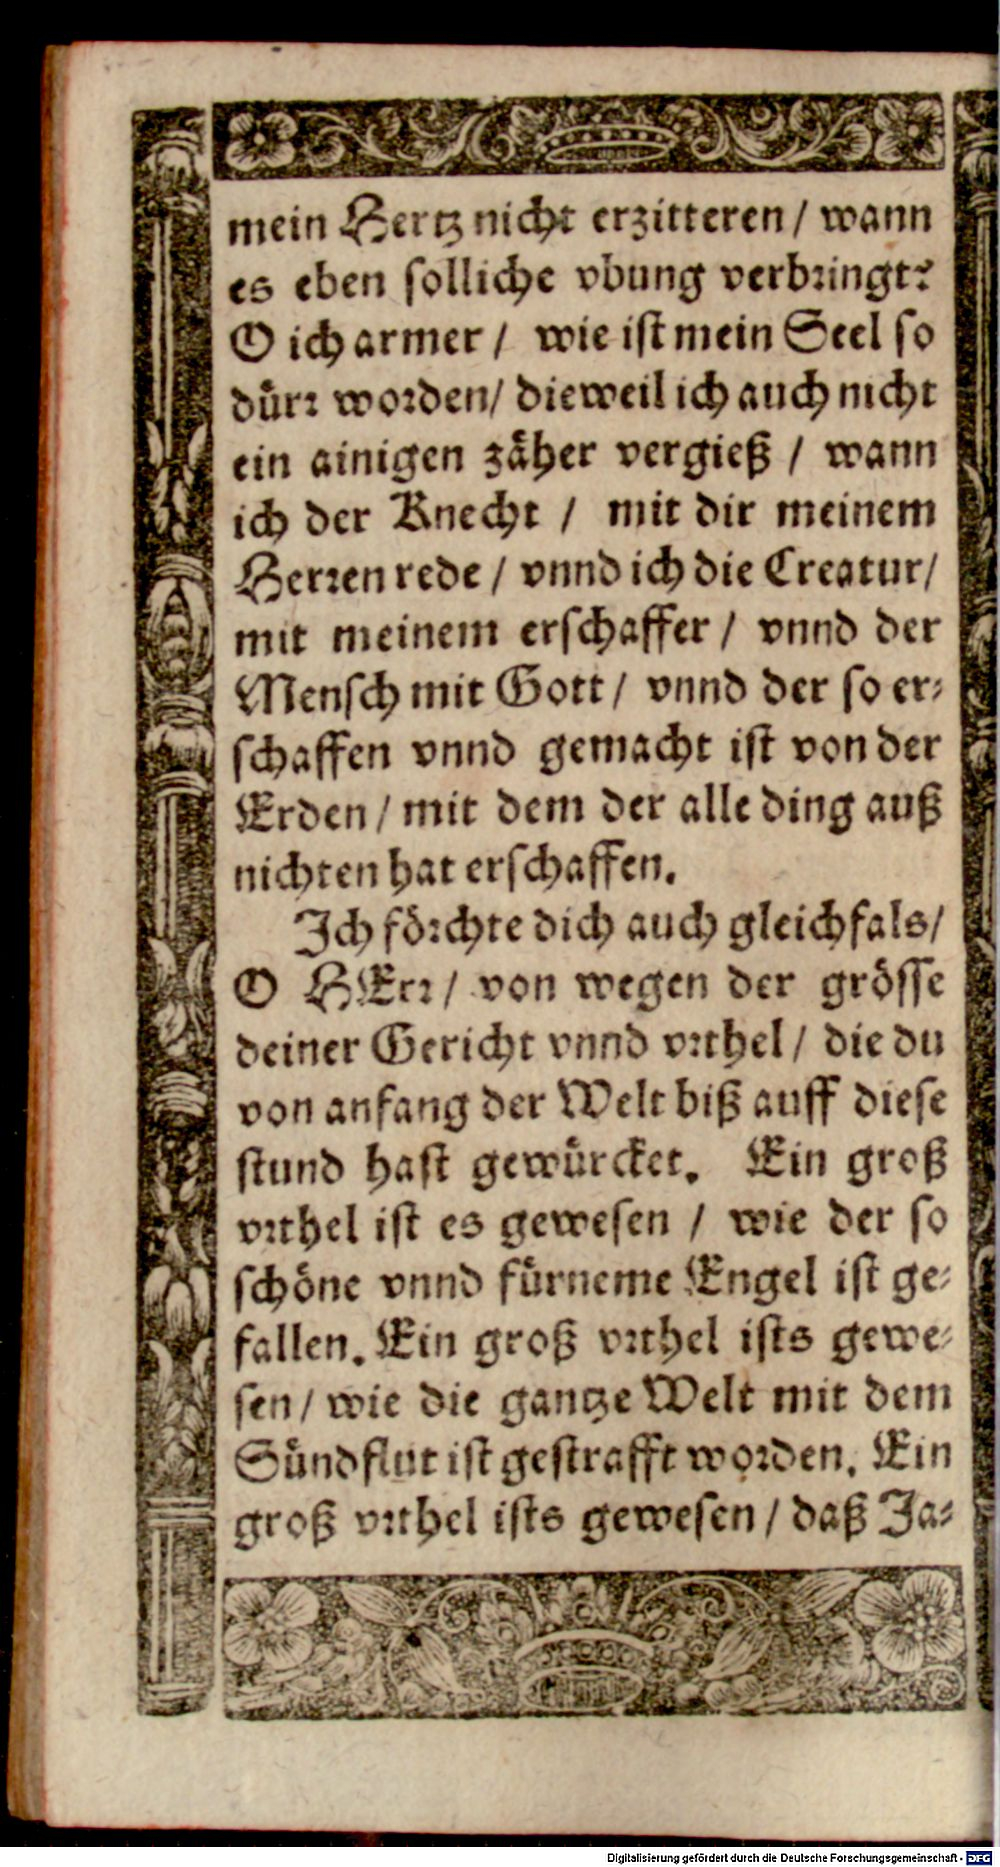 mein Hertz nicht erzitteren / wann
es eben solliche vbung verbringt?
O ich armer / wie ist mein Seel so
dürr worden / dieweil ich auch nicht
ein ainigen zäher vergieß / wann
ich der Knecht / mit dir meinem
Herren rede / vnnd ich die Creatur /
mit meinem erschaffer / vnnd der
Mensch mit Gott / vnnd der so er⸗
schaffen vnnd gemacht ist von der
Erden / mit dem der alle ding auß
nichten hat erschaffen.
Ich förchte dich auch gleichfals /
O HErr / von wegen der grösse
deiner Gericht vnnd vrthel / die du
von anfang der Welt biß auff diese
stund hast gewürcket. Ein groß
vrthel ist es gewesen / wie der so
schöne vnnd fürneme Engel ist ge⸗
fallen. Ein groß vrthel ists gewe⸗
sen / wie die gantze Welt mit dem
Sündflut ist gestrafft worden. Ein
groß vrthel ists gewesen / daß Ja⸗
Digitalisierung gefördert durch die Deutsche Forschungsgemeinschaft - DFG